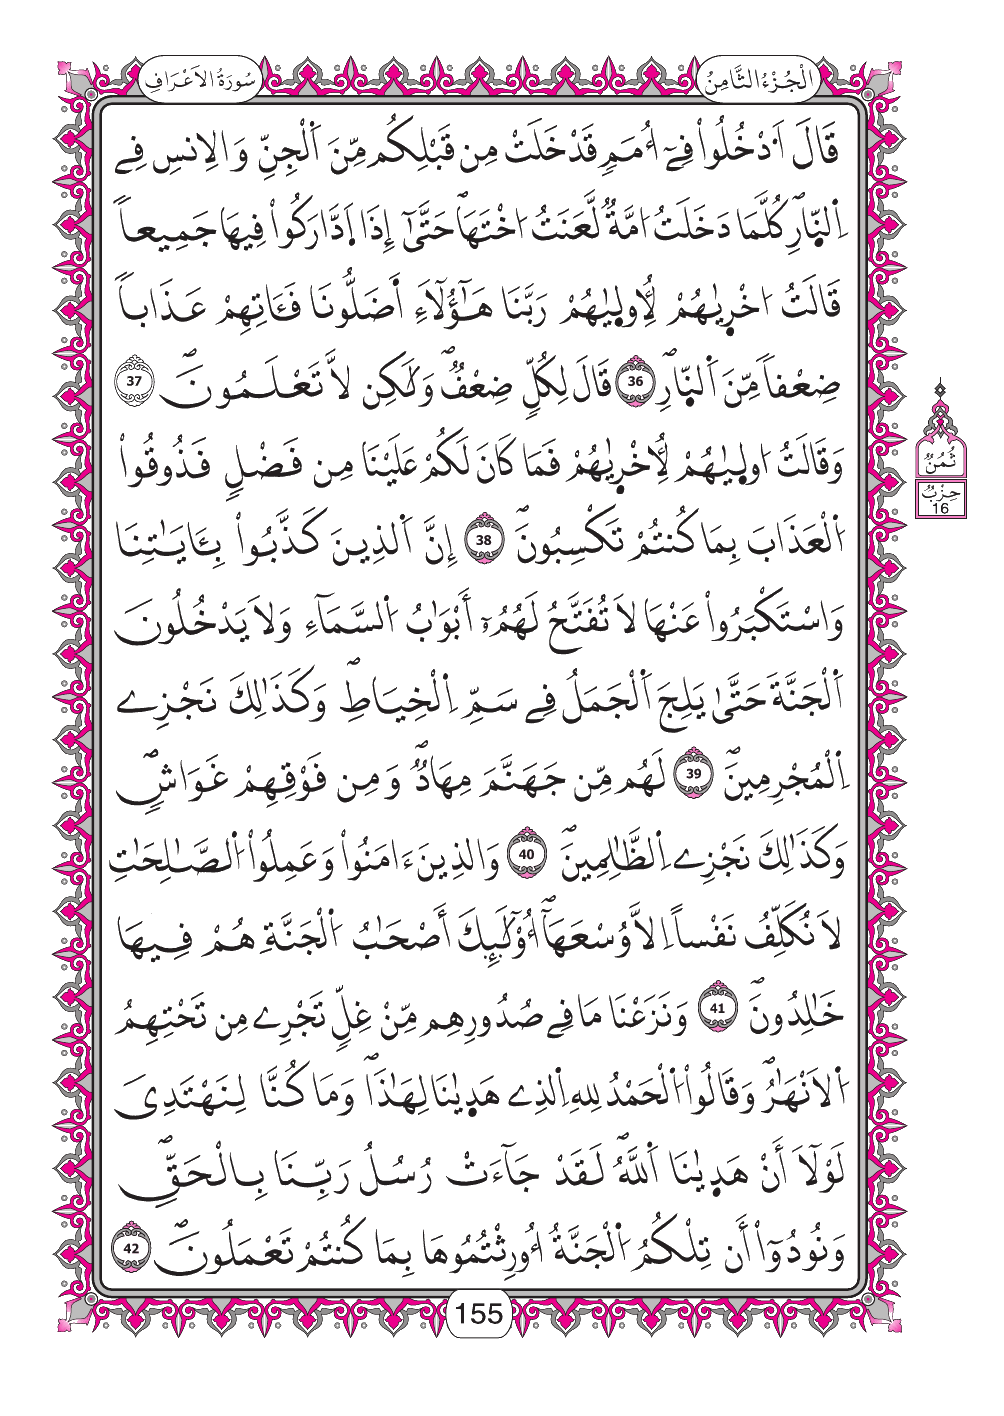 الْجُزْءُ الثَّامِنُ
سُورَةُ الَاعْرَافِ
قَالَ اَدْخُلُواْ فِےٓ أُمَمٖ قَدْ خَلَتْ مِن قَبْلِكُم مِّنَ اَلْجِنِّ وَالِانسِ فِے
اِلنّ۪ارِۖ كُلَّمَا دَخَلَتُ امَّةٞ لَّعَنَتُ اخْتَهَاۖ حَتَّيٰٓ إِذَا اَ۪دَّارَكُواْ فِيهَا جَمِيعاٗ
قَالَتُ اخْر۪يٰهُمْ لِأُول۪يٰهُمْ رَبَّنَا هَٰٓؤُلَآءِ اَ۬ضَلُّونَا فَـَٔاتِهِمْ عَذَاباٗ
ضِعْفاٗ مِّنَ اَلنّ۪ارِۖ 36 قَالَ لِكُلّٖ ضِعْفٞۖ وَلَٰكِن لَّا تَعْلَمُونَۖ 37
وَقَالَتُ اول۪يٰهُمْ لِأُخْر۪يٰهُمْ فَمَا كَانَ لَكُمْ عَلَيْنَا مِن فَضْلٖ فَذُوقُواْ
اُلْعَذَابَ بِمَا كُنتُمْ تَكْسِبُونَۖ 38 إِنَّ اَلذِينَ كَذَّبُواْ بِـَٔايَٰتِنَا
وَاسْتَكْبَرُواْ عَنْهَا لَا تُفَتَّحُ لَهُمُۥٓ أَبْوَٰبُ اُلسَّمَآءِ وَلَا يَدْخُلُونَ
اَلْجَنَّةَ حَتَّيٰ يَلِجَ اَلْجَمَلُ فِے سَمِّ اِلْخِيَاطِۖ وَكَذَٰلِكَ نَجْزِے
اِلْمُجْرِمِينَۖ 39 لَهُم مِّن جَهَنَّمَ مِهَادٞۖ وَمِن فَوْقِهِمْ غَوَاشٖۖ
وَكَذَٰلِكَ نَجْزِے اِلظَّٰلِمِينَۖ 40 وَالذِينَ ءَامَنُواْ وَعَمِلُواْ اُلصَّٰلِحَٰتِ
لَا نُكَلِّفُ نَفْساً اِلَّا وُسْعَهَآۖ أُوْلَٰٓئِكَ أَصْحَٰبُ اُلْجَنَّةِ هُمْ فِيهَا
خَٰلِدُونَۖ 41 وَنَزَعْنَا مَا فِے صُدُورِهِم مِّنْ غِلّٖ تَجْرِے مِن تَحْتِهِمُ
اُلَانْهَٰرُۖ وَقَالُواْ اُلْحَمْدُ لِلهِ اِلذِے هَد۪يٰنَا لِهَٰذَاۖ وَمَا كُنَّا لِنَهْتَدِيَ
لَوْلَآ أَنْ هَد۪يٰنَا اَللَّهُۖ لَقَدْ جَآءَتْ رُسُلُ رَبِّنَا بِالْحَقِّۖ
وَنُودُوٓاْ أَن تِلْكُمُ اُلْجَنَّةُ أُورِثْتُمُوهَا بِمَا كُنتُمْ تَعْمَلُونَۖ 42
ثُمُنٌ
حِزْبٌ
16
155